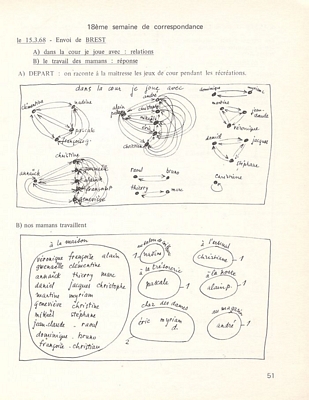 18ème semaine de correspondance
le 15.3.68 - Envoi de BREST
A) dans la cour je joue avec : relations
B) le travail des mamans : réponse
A) DEPART : on raconte à la maîtresse les jeux de cour pendant les récréations.
dans la cour je joue avec
clémentine
martine
pascale
françoise g.
alain
andré
éric
christian
dominique
myriam
marius
jean-claude
véronique
daniel
jacques
stéphane
christine
annick
gwenaelle
françoise
geneviève
raoul
bruno
thierry
marc
B) nos mamans travaillent
à la maison
véronique françoise alain
gwenaelle clémentine
annick thierry marc
daniel jacques christophe
martine myriam
geneviève christine
mikaël stéphane
jean-claude raoul
dominique bruno
françoise christian
martine
1
à la trésorerie
pascale
1
chez des dames
éric myriam d.
2
à l'ouvroir
christine
1
à la poste
alain p.
1
au magasin
andré
1
51